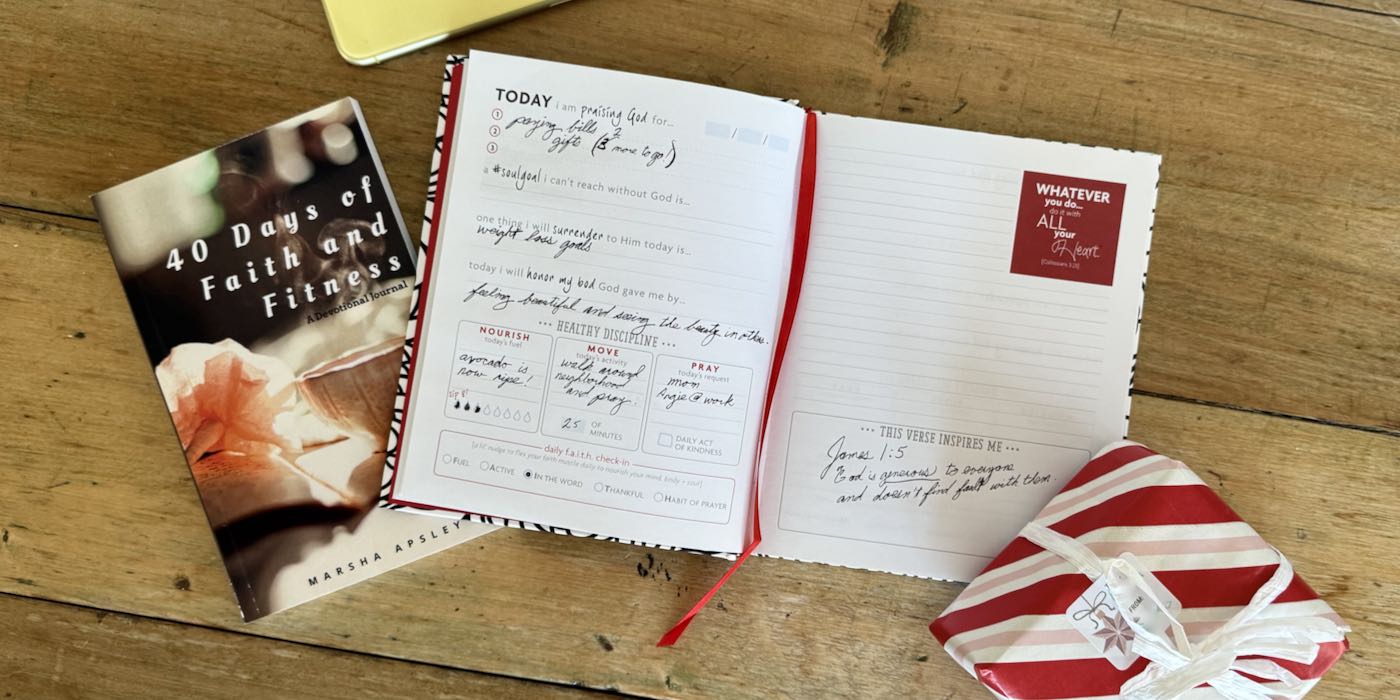 40 Days of
Faith and
Fitness
A Devotional Journal
MARSHA APSLEY
TODAY i am praising God for...
1 paying bills
2 gifts (3 more to go!)
3
a #soulgoal i can't reach without God is...
one thing i will surrender to Him today is...
weight loss goals
today i will honor my bod God gave me by...
feeling beautiful and seeing the beauty in others.
••• HEALTHY DISCIPLINE •••
NOURISH
today's fuel
avocado is
now ripe!
sip 8!
MOVE
today's activity
walk around
neighborhood
and pray.
25 OF
MINUTES
PRAY
today's request
mom
Angie @ work
DAILY ACT
OF KINDNESS
daily f.a.i.t.h. check-in
[a lil' nudge to flex your faith muscle daily to nourish your mind, body + soul]
FUEL ACTIVE IN THE WORD THANKFUL HABIT OF PRAYER
WHATEVER
you do...
do it with
ALL
your
Heart
[Colossians 3:23]
••• THIS VERSE INSPIRES ME •••
James 1:5
God is generous to everyone
and doesn't find fault with them.
FROM: